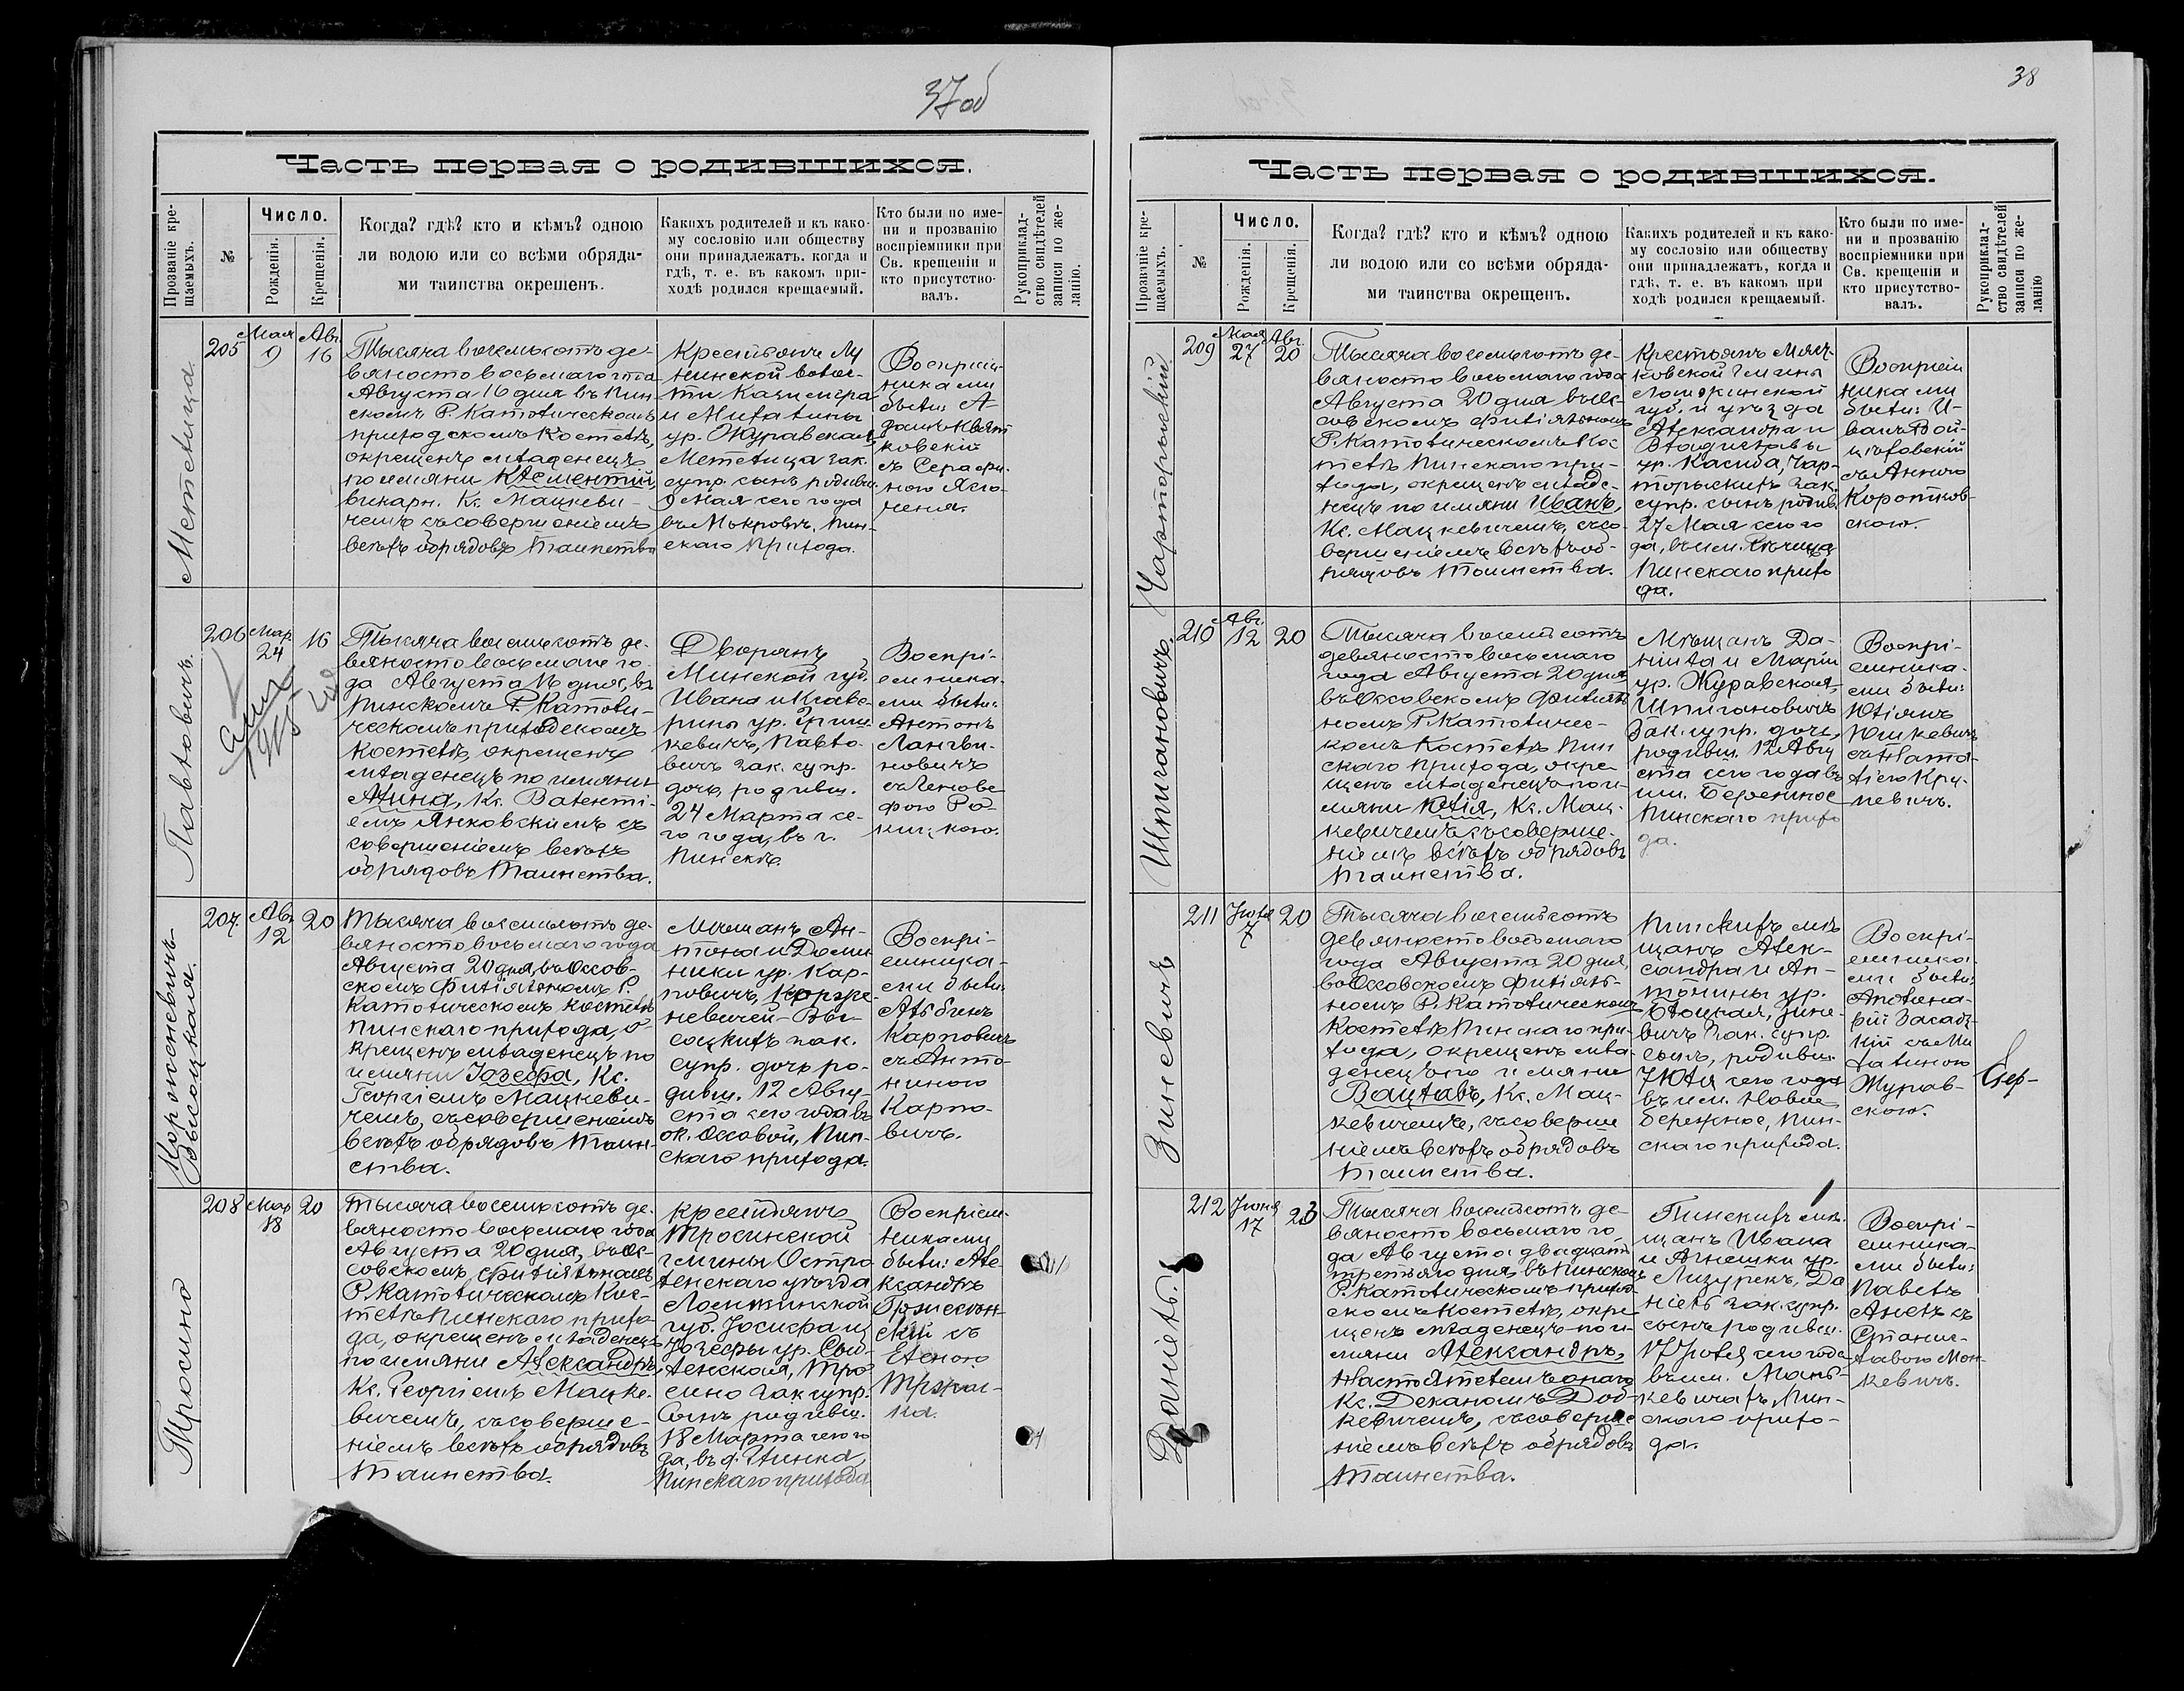 37об
Часть первая о родившихся.
Прозваніе кре-
щаемыхъ.
№
Число.
Рожденія.
Крещенія.
Когда? гдѣ? кто и кѣмъ? одною
ли водою или со всѣми обряда-
ми таинства окрещенъ.
Какихъ родителей и къ како-
му сословію или обществу
они принадлежатъ. когда и
гдѣ, т. е. въ какомъ при-
ходѣ родился крещаемый.
Кто были по име-
ни и прозванію
воспріемники при
Св. крещеніи и
кто присутство-
валъ.
Рукоприклад-
ство свидѣтелей
записи по же-
ланію.
Метельица
205
Мая
9
Авг.
16
Тысяча восемьсотъ де-
вяносто восьмаго года
Августа 16 дня въ Пин
скомъ Р. Католическомъ
приходскомъ Костелѣ,
окрещенъ младенецъ
по имяни Клементій,
викарн. Кс. Мацкеви-
чемъ съ совершеніемъ
всѣхъ обрядовъ Таинства
Крестьянъ Лу
нинской волос-
ти Казимера
и Михалины
ур. Журавской
Метелица зак.
супр. сынъ родивш.
9 Мая сего года
въ Мокровѣ, Пин-
скаго Прихода.
Воспріем-
никами
были: А-
дамъ Квят
ковскій
съ Серафи-
ною Ясю-
ченя.
Павловичъ.
206
Мар
24
16
Тысяча восемьсотъ де-
вяносто восьмаго го-
да Августа 16 дня, въ
Пинскомъ Р. Католи-
ческомъ приходскомъ
Костелѣ, окрещенъ
младенецъ по имяни
Анна, Кс. Валенті-
емъ Янковскимъ съ
совершеніемъ всѣхъ
обрядовъ Таинства.
Дворянъ
Минской губ.
Ивана и Ксаве-
рины ур. Гриш
кевичъ, Павло-
вичъ зак. супр.
дочь, родивш.
24 Марта се-
го года, въ г.
Пинскѣ.
Воспрі-
емника-
ми были:
Антонъ
Лангви-
новичъ
съ Геновe
фою Ро-
кицкою.
Корженевичъ-
Высоцкая.
207.
Авг
12
20
Тысяча восемьсотъ де-
вяносто восьмаго года
Августа 20 дня, въ Оссов-
скомъ Филіяльномъ Р.
Католическомъ Костелѣ
Пинскаго прихода, о-
крещенъ младенецъ по
имяни Іозефа, Кс.
Георгіемъ Мацкеви-
чемъ, съ совершеніемъ
всѣхъ обрядовъ Таин-
ства.
Мѣщанъ Ан-
тона и Доми-
ники ур. Кар-
повичъ, Корже-
невичей-Вы-
соцкихъ зак.
супр. дочь ро-
дивш. 12 Авгу-
ста сего года въ
ок. Оссовой, Пин-
скаго прихода.
Воспрі-
емника-
ми были:
Альбинъ
Карповичъ
съ Анто-
ниною
Карпо-
вичъ.
Тросино
208
Мар
18
20
Тысяча восемьсотъ де-
вяносто восьмаго года
Августа 20 дня, въ Ос-
совскомъ Филіяльномъ
Р. Католическомъ Кос-
телѣ Пинскаго прихо-
да, окрещенъ младенецъ
по имяни Александръ,
Кс. Георгіемъ Мацке-
вичемъ, съ соверше-
ніемъ всѣхъ обрядовъ
Таинства.
Крестьянъ
Тросинской
гмины Остро
ленскаго уѣзда
Ломжинской
губ. Іосифа и
Юзефы ур. Сои-
ленская, Тро
сино зак супр.
Сынъ родивш.
18 Марта сего го
да, въ д.
Пинскаго прихода
Воспріем-
никами
были: Але-
ксандръ
скій съ
Еленою
38
Часть первая о родившихся.
Прозваніе кре-
щаемыхъ.
№
Число.
Рожденія.
Крещенія.
Когда? гдѣ? кто и кѣмъ? одною
ли водою или со всѣми обряда-
ми таинства окрещенъ.
Какихъ родителей и къ како-
му сословію или обществу
они принадлежатъ, когда и
гдѣ, т. е. въ какомъ при
ходѣ родился крещаемый.
Кто были по име-
ни и прозванію
воспріемники при
Св. крещеніи и
кто присутство-
валъ.
Рукоприклад-
ство свидѣтелей
записи по же-
ланію
Чарторыскій
209
Мая
27
Авг.
20
Тысяча восемьсотъ де-
вяносто восьмаго года
Августа 20 дня въ Ос-
совскомъ Филіяльномъ
Р. Католическомъ Кос
телѣ Пинскаго при-
хода, окрещенъ младе-
нецъ по имяни Иванъ,
Кс. Мацкевичемъ, съ со-
вершеніемъ всѣхъ об-
рядовъ Таинства.
Крестьянъ Мяст-
ковской Гмины
Ломжинской
губ. и уѣзда
Александра и
Владиславы
ур. Касида, Чар-
торыскихъ зак.
супр. сынъ родив.
27 Мая сего го
да, въ им. Рѣчица
Пинскаго прихо
да.
Воспріем
никами
были: И-
ванъ Вой-
цѣховскій
съ Анною
Коротков-
скою.
Шпигановичъ
210
Авг.
12
20
Тысяча восемьсотъ
девяносто восьмаго
года Августа 20 дня
въ Оссовскомъ Филіял
номъ Р. Католичес-
комъ Костелѣ Пин
скаго Прихода, окре-
щенъ младенецъ по и-
мяни Юлія, Кс. Мац-
кевичемъ съ соверше-
ніемъ всѣхъ обрядовъ
Таинства.
Мѣщанъ Да-
ніила и Маріи
ур. Журавской,
Шпигановичъ
Зак. супр. дочь,
родивш. 12 Авгу
ста сего года въ
им. Бережное
Пинскаго прихо
да.
Воспрі-
емника-
ми были:
Юліянъ
Юшкевичъ
съ Ната-
ліею Кру-
певичъ.
Зиневичъ
211
Іюля
7
20
Тысяча восемьсотъ
девяносто восьмаго
года Августа 20 дня,
въ Оссовскомъ Филіяль-
номъ Р. Католическомъ
Костелѣ Пинскаго при-
хода, окрещенъ мла-
денецъ по имяни
Вацлавъ, Кс. Мац-
кевичемъ, съ соверше
ніемъ всѣхъ обрядовъ
Таинства.
Пинскихъ мѣ
щанъ Алек-
сандра и Ан-
тонины ур.
Блоцкая, Зине-
вичъ Зак. супр.
сынъ, родивш.
7 Юля сего года
въ им. Новое
Бережное, Пин-
скаго прихода.
Воспрі-
емника-
ми были:
Аполина-
рій Засад-
ній съ Ми
халиною
Журав-
скою.
Даніель.
212
17
23
Тысяча восемьсотъ де-
вяносто восьмаго го-
да Августа двадцать
третьяго дня, въ Пинскомъ
Р. Католическомъ приход-
скомъ Костелѣ, окре
щенъ младенецъ по и-
мяни Александръ,
Настоятелемъ онаго
Кс. Деканомъ Дод-
кевичемъ, съ соверше
ніемъ всѣхъ обрядовъ
Таинства.
Пинскихъ мѣ-
щанъ Ивана
и Агнешки ур.
Лизурекъ, Да
ніель зак. супр.
сынъ родивш.
17 Іюля сего года
въ им. Мань-
кевичахъ, Пин-
скаго прихо-
да.
Воспрі-
емника-
ми были:
Павелъ
Анелъ съ
Станис-
лавою Мон-
кевичъ.